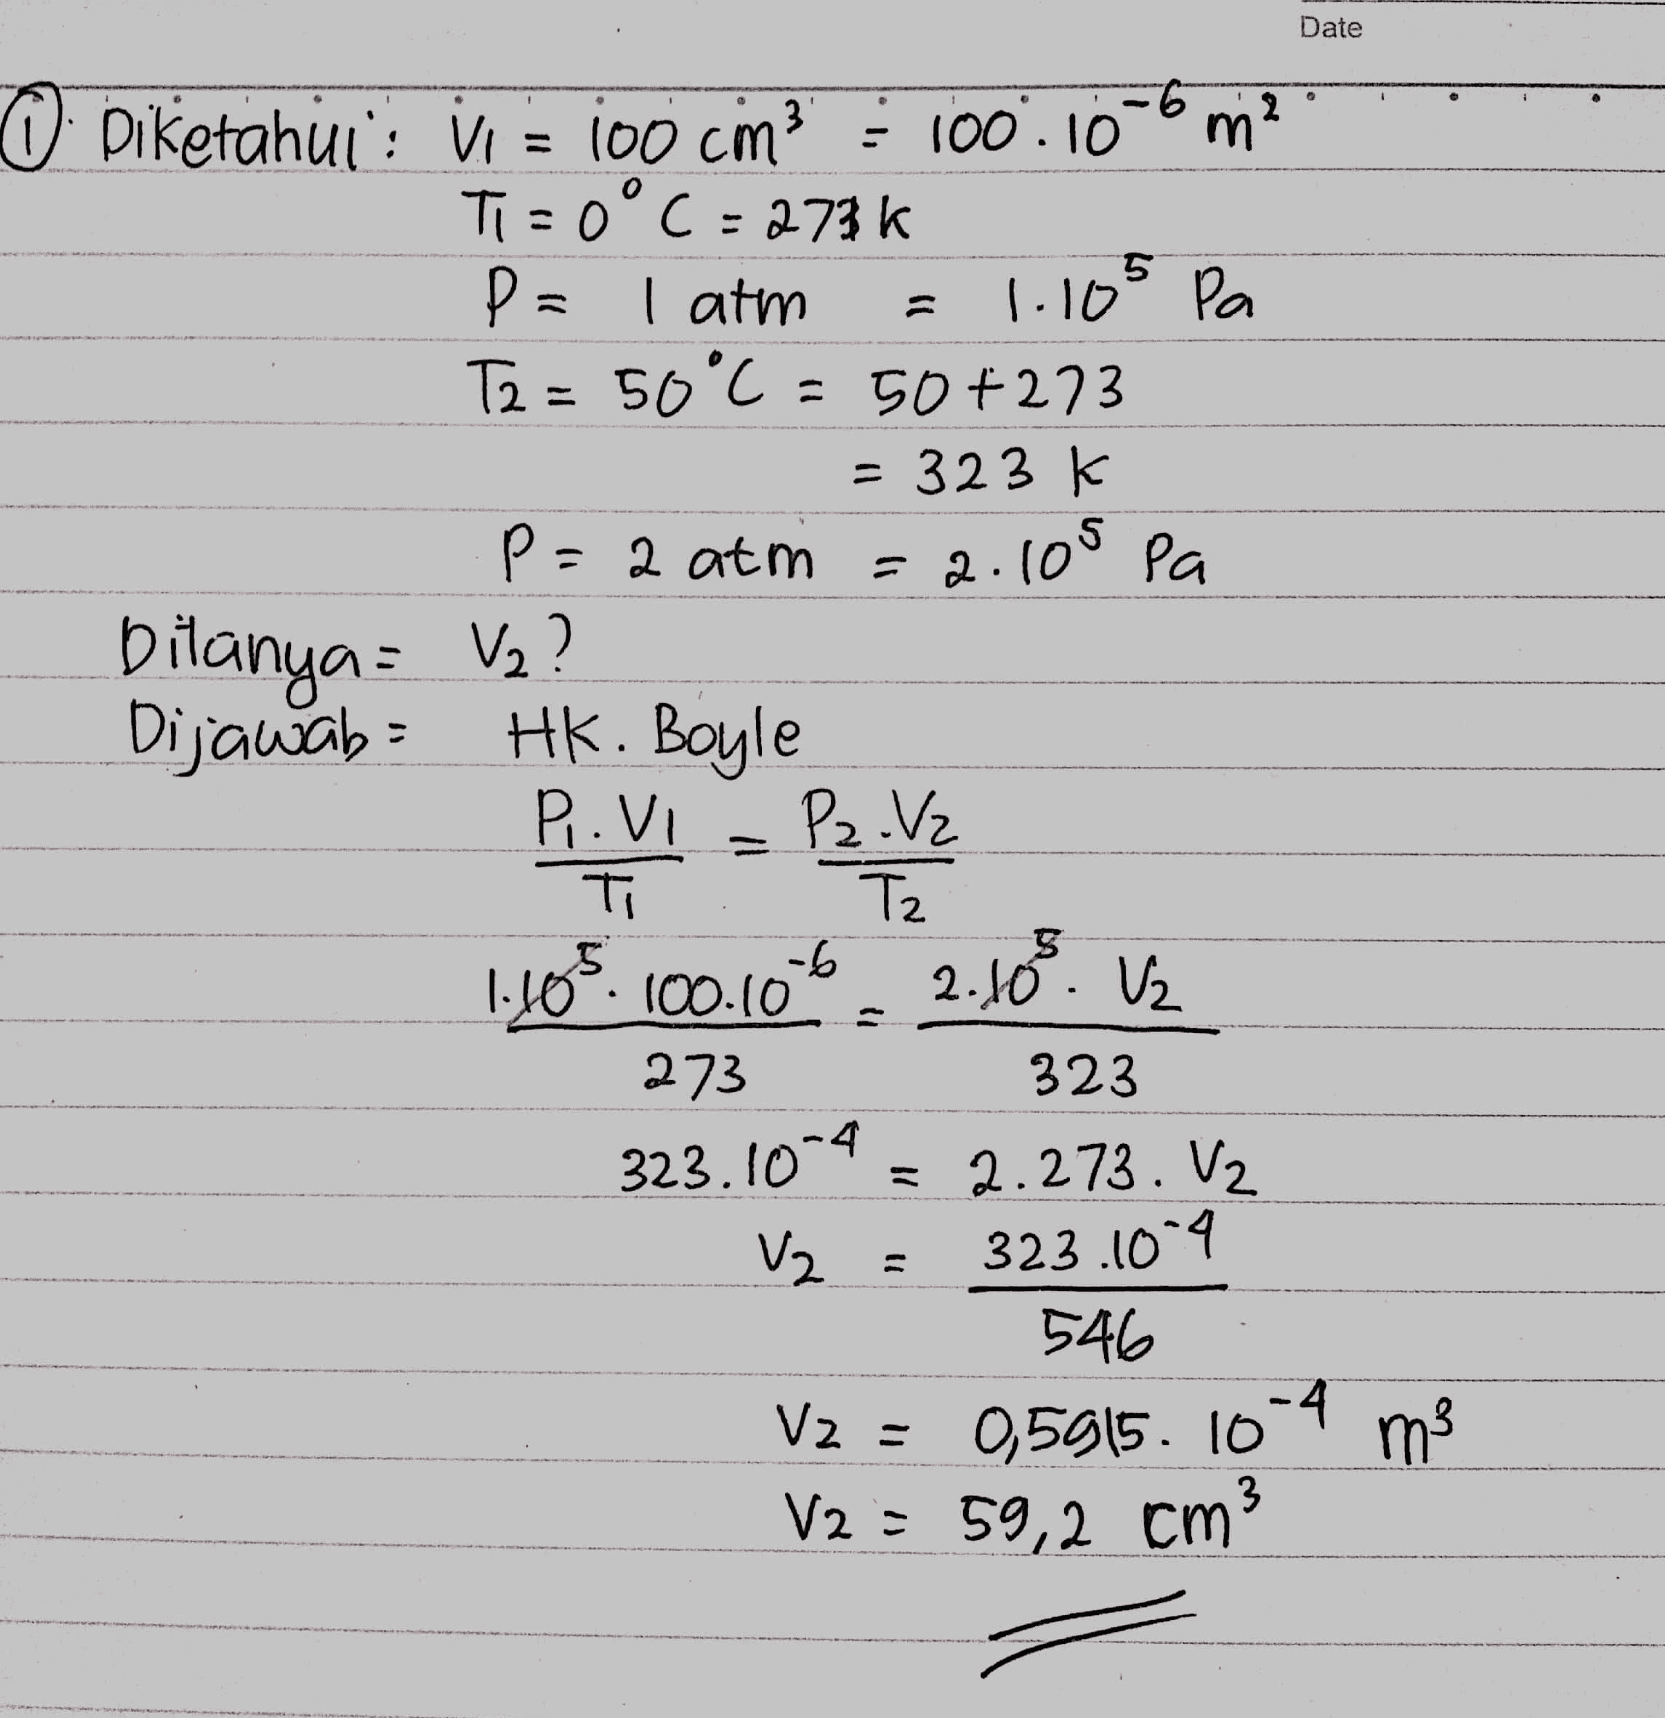 Date
① Diketahui : V1 = 100 cm³ = 100 . 10⁻⁶ m²
T1 = 0°C = 273 K
P = 1 atm = 1.10⁵ Pa
T2 = 50°C = 50 + 273
= 323 K
P = 2 atm = 2.10⁵ Pa
Ditanya = V2 ?
Dijawab = HK. Boyle
P1 . V1 / T1 = P2 . V2 / T2
1.10⁵ . 100.10⁻⁶ / 273 = 2.10⁵ . V2 / 323
323.10⁻⁴ = 2.273. V2
V2 = 323.10⁻⁴ / 546
V2 = 0,5915. 10⁻⁴ m³
V2 = 59,2 cm³